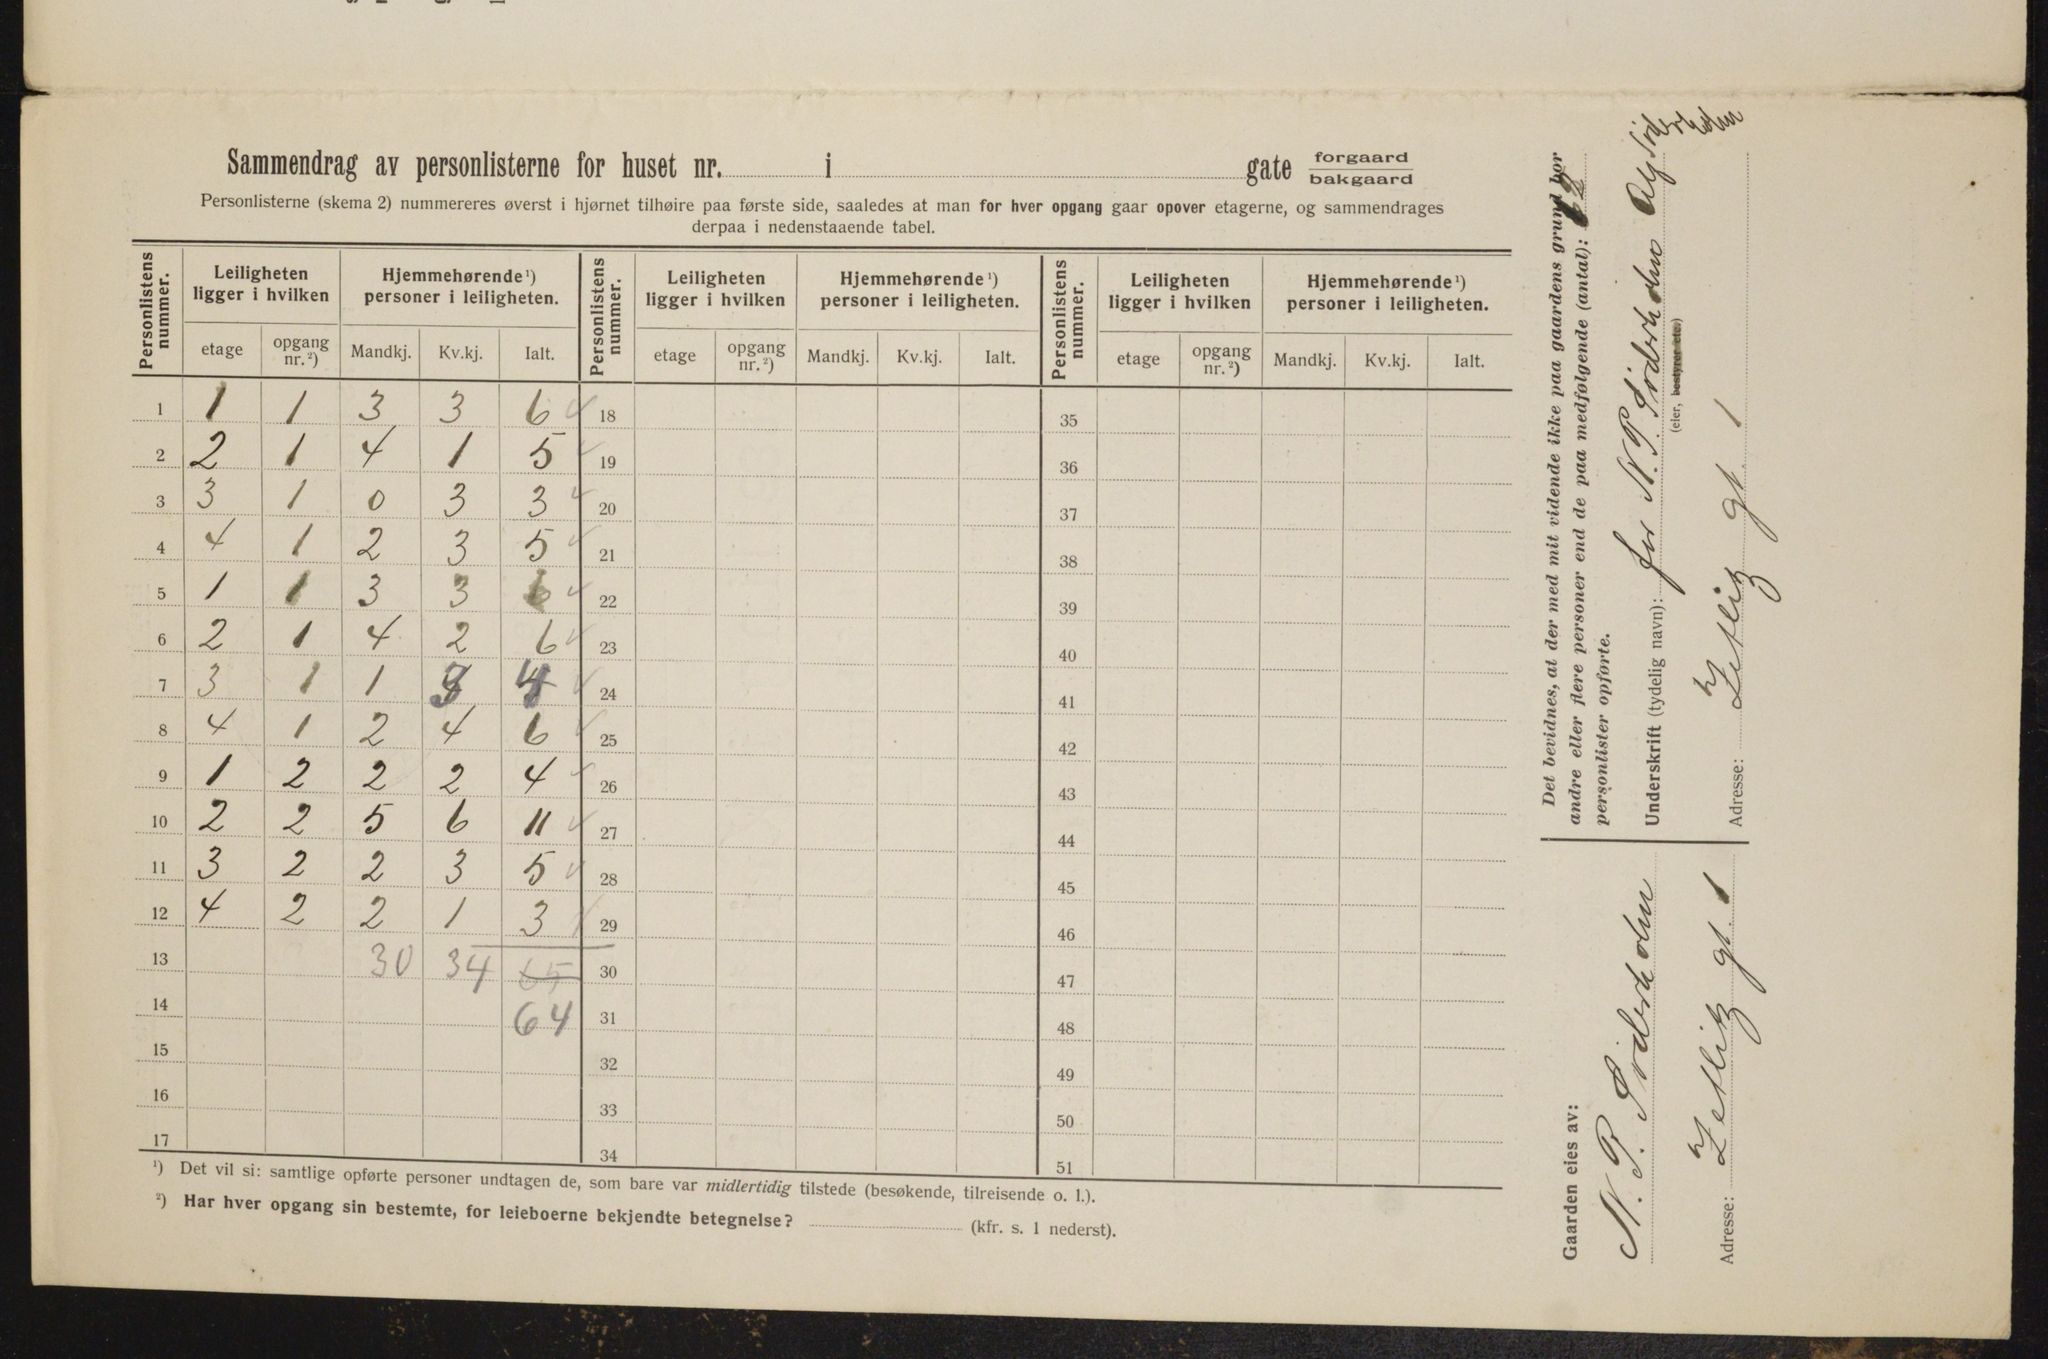 Sammendrag av personlisterne for huset nr. i gate forgaard bakgaard
Personlisterne (skema 2) nummereres øverst i hjørnet tilhøire paa første side, saaledes at man for hver opgang gaar opover etagerne, og sammendrages
derpaa i nedenstaaende tabel.
Personlistens nummer. Leiligheten ligger i hvilken Hjemmehørende ¹) personer i leiligheten. Personlistens nummer. Leiligheten ligger i hvilken Hjemmehørende ¹) personer i leiligheten. Personlistens nummer. Leiligheten ligger i hvilken Hjemmehørende ¹) personer i leiligheten.
etage opgang nr. ²) Mandkj. Kv.kj. Ialt. etage opgang nr. ²) Mandkj. Kv.kj. Ialt. etage opgang nr. ²) Mandkj. Kv.kj. Ialt.
1 1 1 3 3 6 18 35
2 2 1 4 1 5 19 36
3 3 1 0 3 3 20 37
4 4 1 2 3 5 21 38
5 1 1 3 3 6 22 39
6 2 1 4 2 6 23 40
7 3 1 1 3 4 24 41
8 4 1 2 4 6 25 42
9 1 2 2 2 4 26 43
10 2 2 5 6 11 27 44
11 3 2 2 3 5 28 45
12 4 2 2 1 3 29 46
13 30 34 65 30 47
14 64 31 48
15 32 49
16 33 50
17 34 51
¹) Det vil si: samtlige opførte personer undtagen de, som bare var midlertidig tilstede (besøkende, tilreisende o. l.).
²) Har hver opgang sin bestemte, for leieboerne bekjendte betegnelse? (kfr. s. 1 nederst).
Det bevidnes, at der med mit vidende ikke paa gaardens grund bor
andre eller flere personer end de paa medfølgende (antal): 12
personlister opførte.
Underskrift (tydelig navn): for N. P. Söderholm Söderholm
(eier, bestyrer etc.)
Adresse: Zetlitz gt. 1
Gaarden eies av:
N. P. Söderholm
Adresse: Zetlitz gt 1